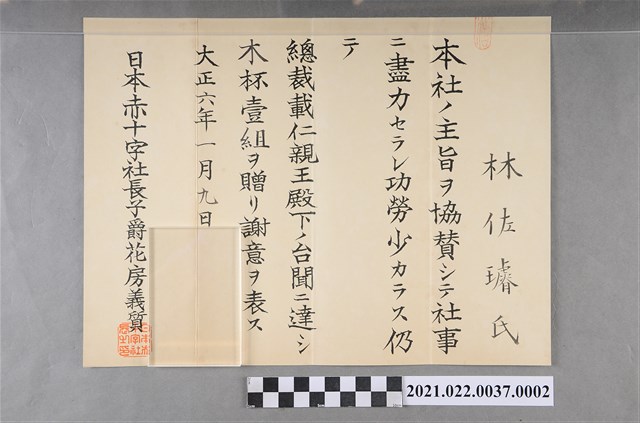 林佐璿氏
本社ノ主旨ヲ協賛シテ社事
ニ盡力セラレ功勞少カラス仍
テ
總裁載仁親王殿下ノ台聞ニ達シ
木杯壹組ヲ贈リ謝意ヲ表ス
大正六年一月九日
日本赤十字社長子爵花房義質
2021.022.0037.0002